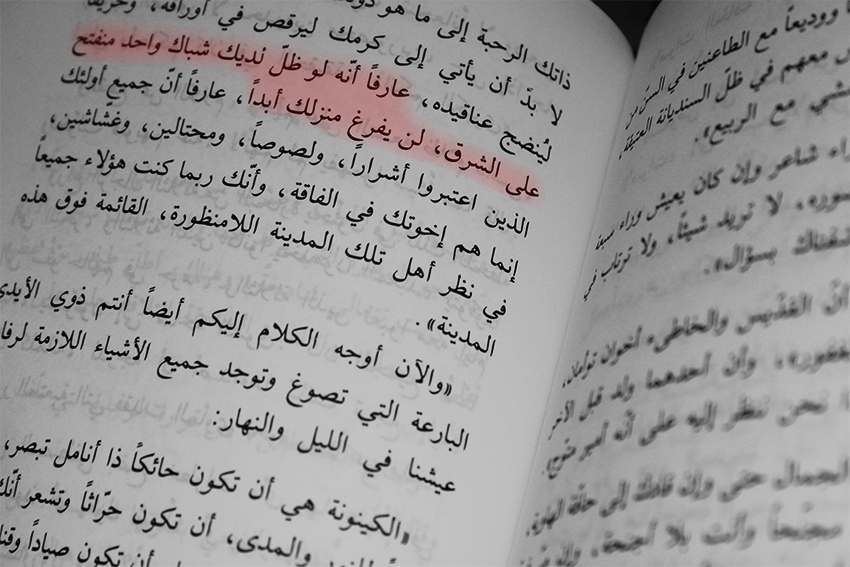 ذاتك الرحبة إلى ما هو
لا بدّ أن يأتي إلى كرمك ليرقص في أوراقه، وحريفا
ليُنضج عناقيده، عارفاً أنّه لو ظلّ لديك شباك واحد منفتح
على الشرق، لن يفرغ منزلك أبداً، عارفاً أنّ جميع أولئك
الذين اعتبروا أشراراً، ولصوصاً، ومحتالين، وغشّاشين،
إنما هم إخوتك في الفاقة، وأنّك ربما كنت هؤلاء جميعاً
في نظر أهل تلك المدينة اللامنظورة، القائمة فوق هذه
المدينة».
«والآن أوجه الكلام إليكم أيضاً أنتم ذوي الأيدي
البارعة التي تصوغ وتوجد جميع الأشياء اللازمة لرفا
عيشنا في الليل والنهار:
«الكينونة هي أن تكون حائكاً ذا أنامل تبصر،
والمدى، أن تكون حرّاثاً وتشعر أنّك
أن تكون صياداً
ووديعاً مع الطاعنين في السنّ
معهم في ظلّ السنديانة العتيقة،
مع الربيع».
شاعر وإن كان يعيش وراء سبعة
لا تريد شيئاً، ولا ترتاب في
بسؤال».
أنّ القدّيس والخاطىء أخوان توأمان،
وأن أحدهما ولد قبل الآخر
نحن ننظر إليه على أنّه أمير متوّج.
الجمال حتى وإن قادك إلى حافّة الهاوية،
مجنّحاً وأنت بلا أجنحة،